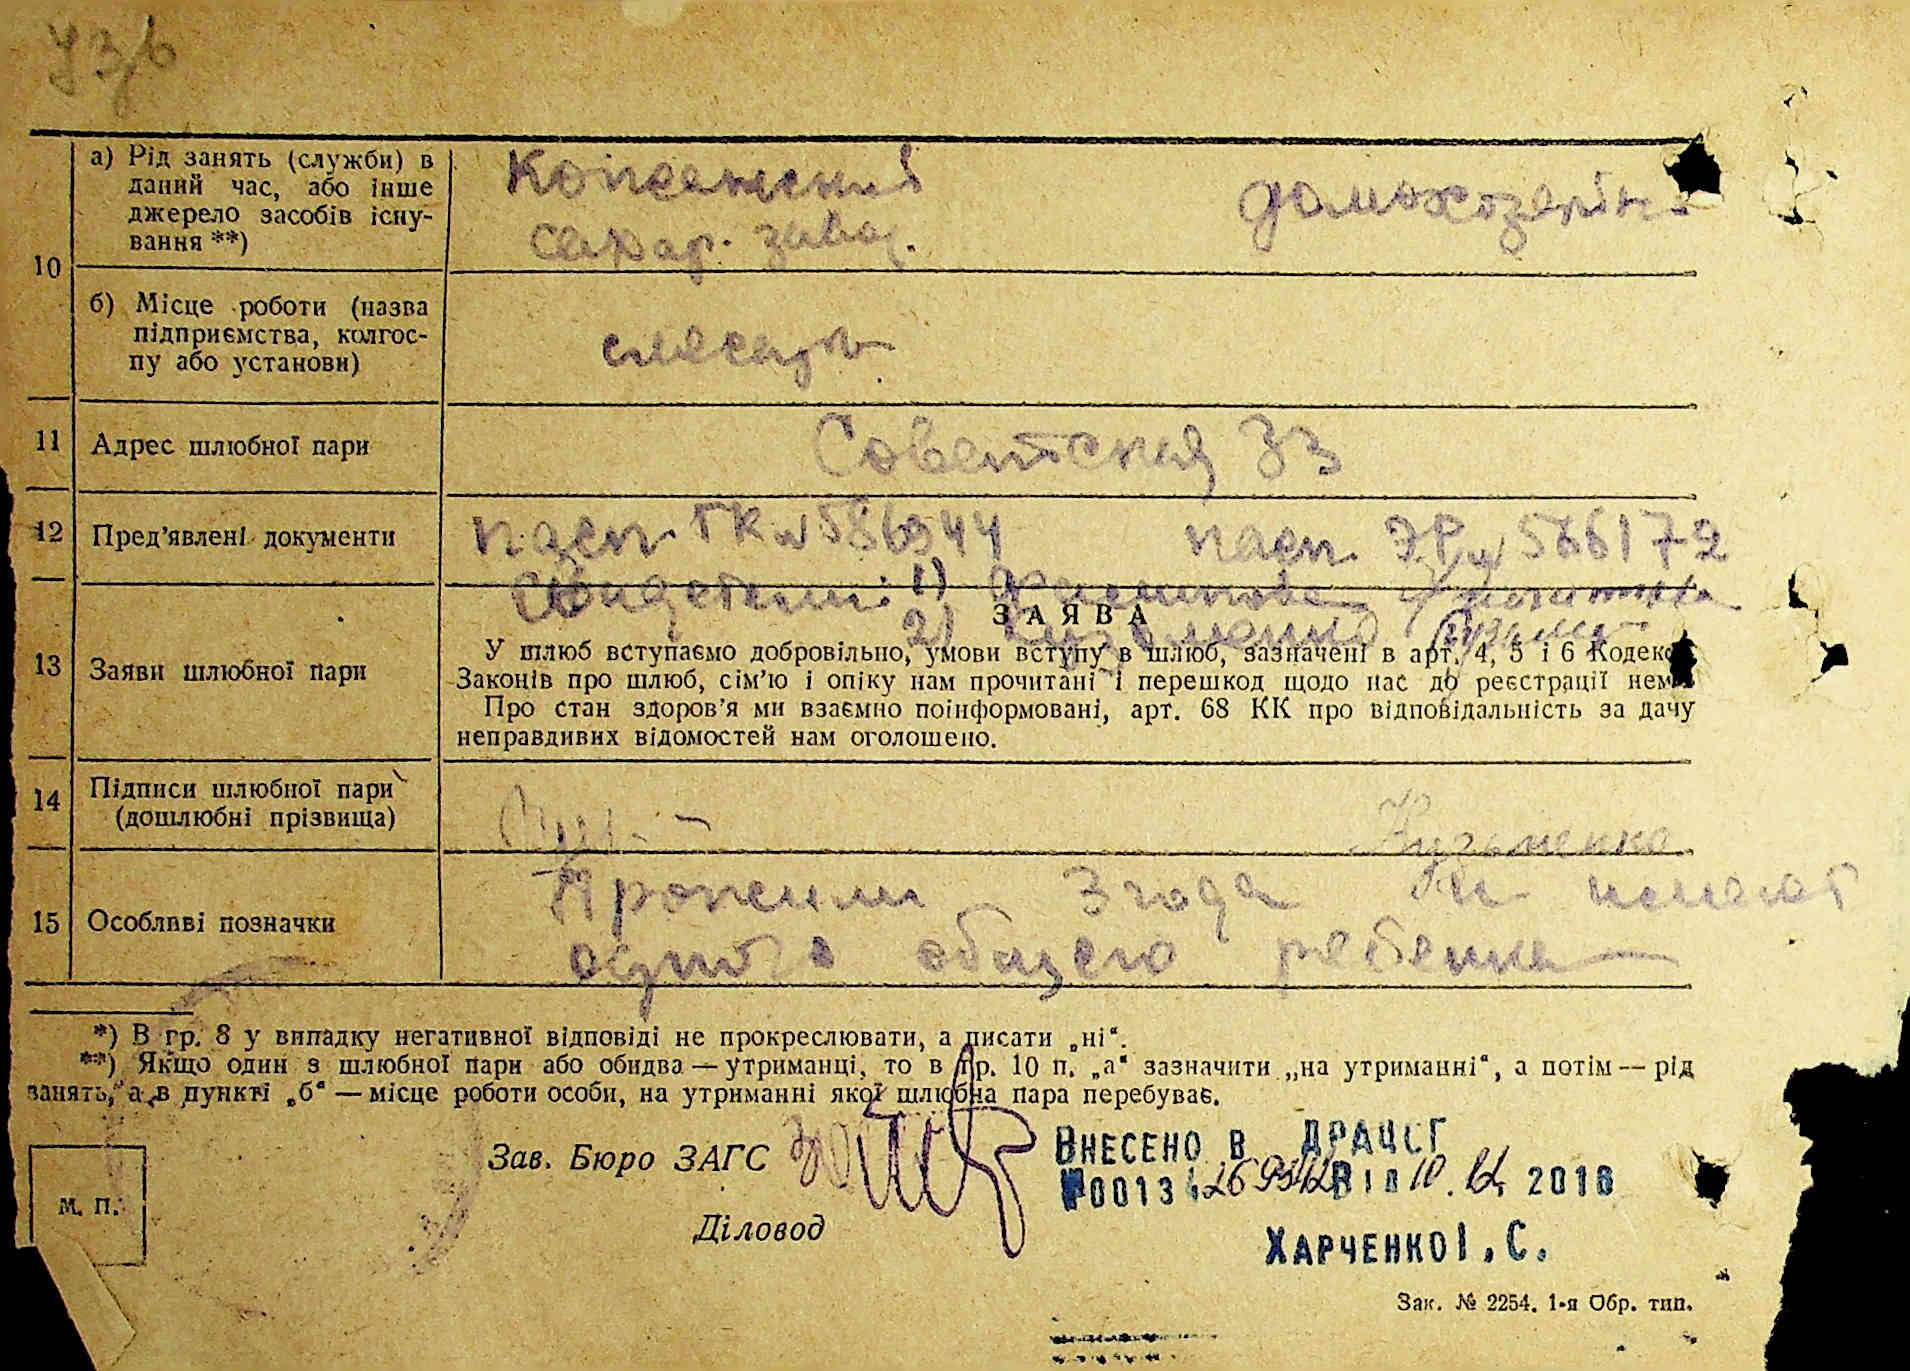 10
а) Рід занять (служби) в
даний час, або інше
джерело засобів існу-
вання **)
сахар. завод.
домохозяйк
б) Місце роботи (назва
підприємства, колгос-
пу або установи)
слесарь
11
Адрес шлюбної пари
Советская 33
12
Пред'явлені документи
пасп. ГК № 586944
пасп. ЭР № 566172
Свидетели: 1)
2) Кузьменко
13
Заяви шлюбної пари
ЗАЯВА
У шлюб вступаємо добровільно, умови вступу в шлюб, зазначені в арт. 4, 5 і 6 Кодекс
Законів про шлюб, сім'ю і опіку нам прочитані і перешкод щодо нас до реєстрації нема
Про стан здоров'я ми взаємно поінформовані, арт. 68 КК про відповідальність за дачу
неправдивих відомостей нам оголошено.
14
Підписи шлюбної пари
(дошлюбні прізвища)
Кузьменко
15
Особливі позначки
Прожили 3 года и имеют
одного общего ребенка
*) В гр. 8 у випадку негативної відповіді не прокреслювати, а писати „ні“.
**) Якщо один з шлюбної пари або обидва — утриманці, то в гр. 10 п. „а“ зазначити „на утриманні“, а потім — рід
занять, а в пункті „б“ — місце роботи особи, на утриманні якої шлюбна пара перебуває.
М. П.
Зав. Бюро ЗАГС
Діловод
ВНЕСЕНО В ДРАЦСГ
№00134269542 ВІД 10.12.2018
ХАРЧЕНКО І.С.
Зак. № 2254. 1-я Обр. тип.